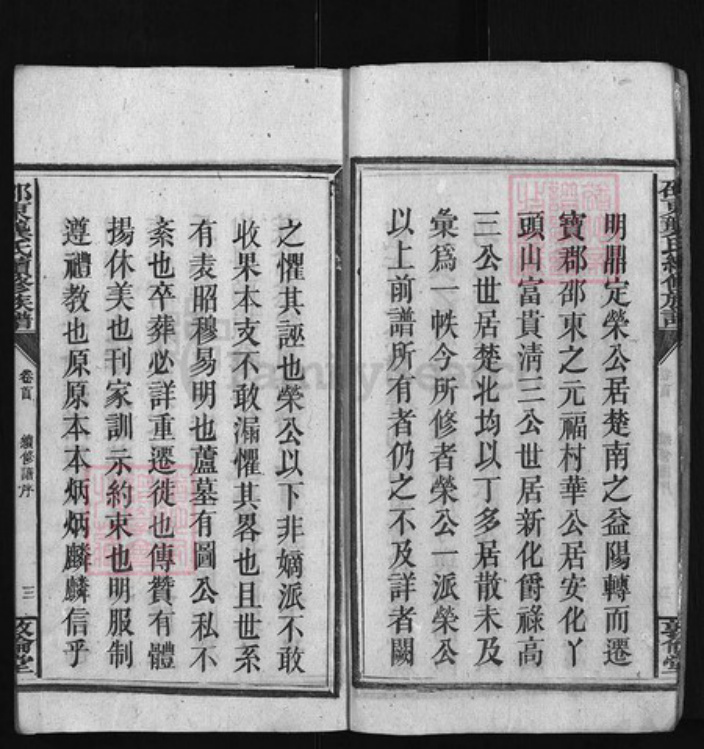 明鼎定榮公居楚南之益陽轉而遷
寶郡邵東之元福村華公居安化丫
頭山富貴清三公世居新化爵祿高
三公世居楚北均以丁多居散未及
彙爲一帙今所修者榮公一派榮公
以上前譜所有者仍之不及詳者闕
之懼其誣也榮公以下非嫡派不敢
收果本支不敢漏懼其畧也且世系
有表昭穆易明也蘆墓有圖公私不
紊也卒葬必詳重遷徙也傳贊有體
揚休美也刊家訓示約束也明服制
遵禮教也原原本本炳炳麟麟信乎
邵東龔氏續修族譜
卷首
續修譜序
三
敦倫堂